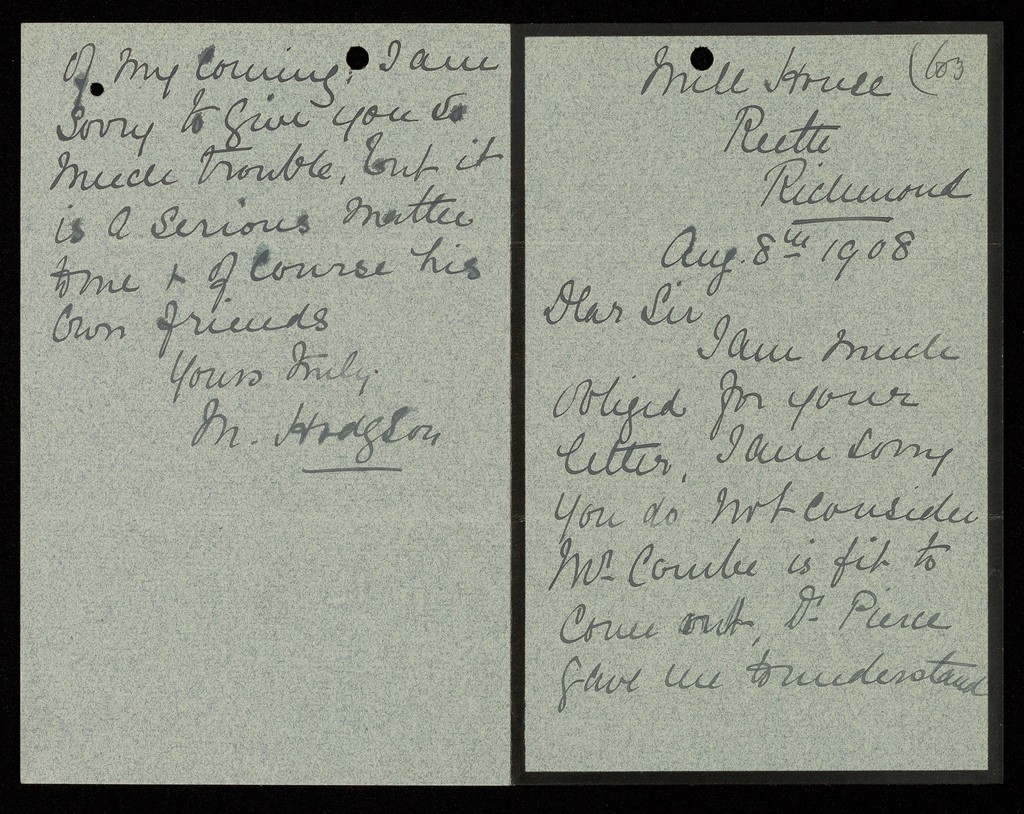 Mill House (603
Reeth
Richmond
Aug. 8th 1908
Dear Sir
I am much
obliged for your
letter, I am sorry
you do not consider
Mr. Combe is fit to
come out, Dr. Pierce
gave me to understand
of my coming. I am
sorry to give you so
much trouble, but it
is a serious matter
to me & of course his
own friends
Yours truly.
M. Hodgson